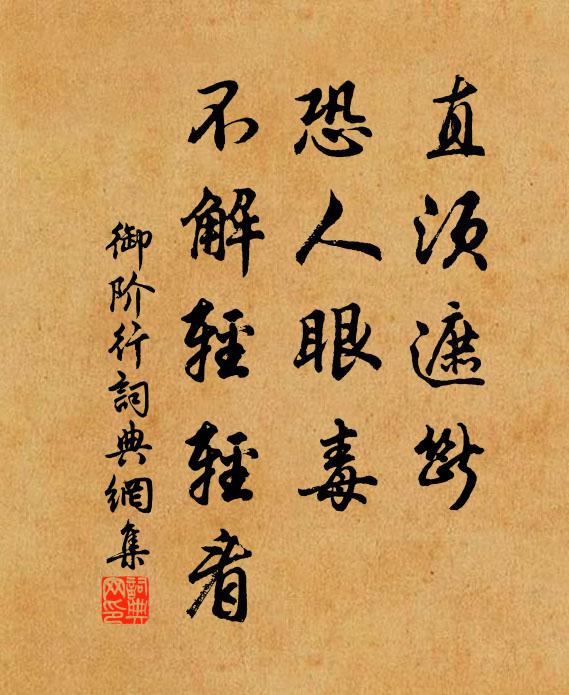 直須遮斷
恐人眼毒
不解輕輕看
御阶行詞典網集
詞典网印